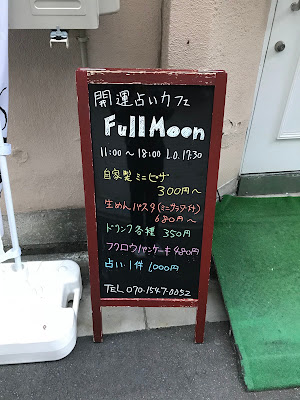 開運占いカフェ
Full Moon
11:00〜18:00 L.O.17:30
自家製ミニピザ
300円〜
生めんパスタ(ミニサラダ付)
680円〜
ドリンク各種 350円
フクロウパンケーキ 480円
占い1件 1,000円
TEL 070-1547-0052